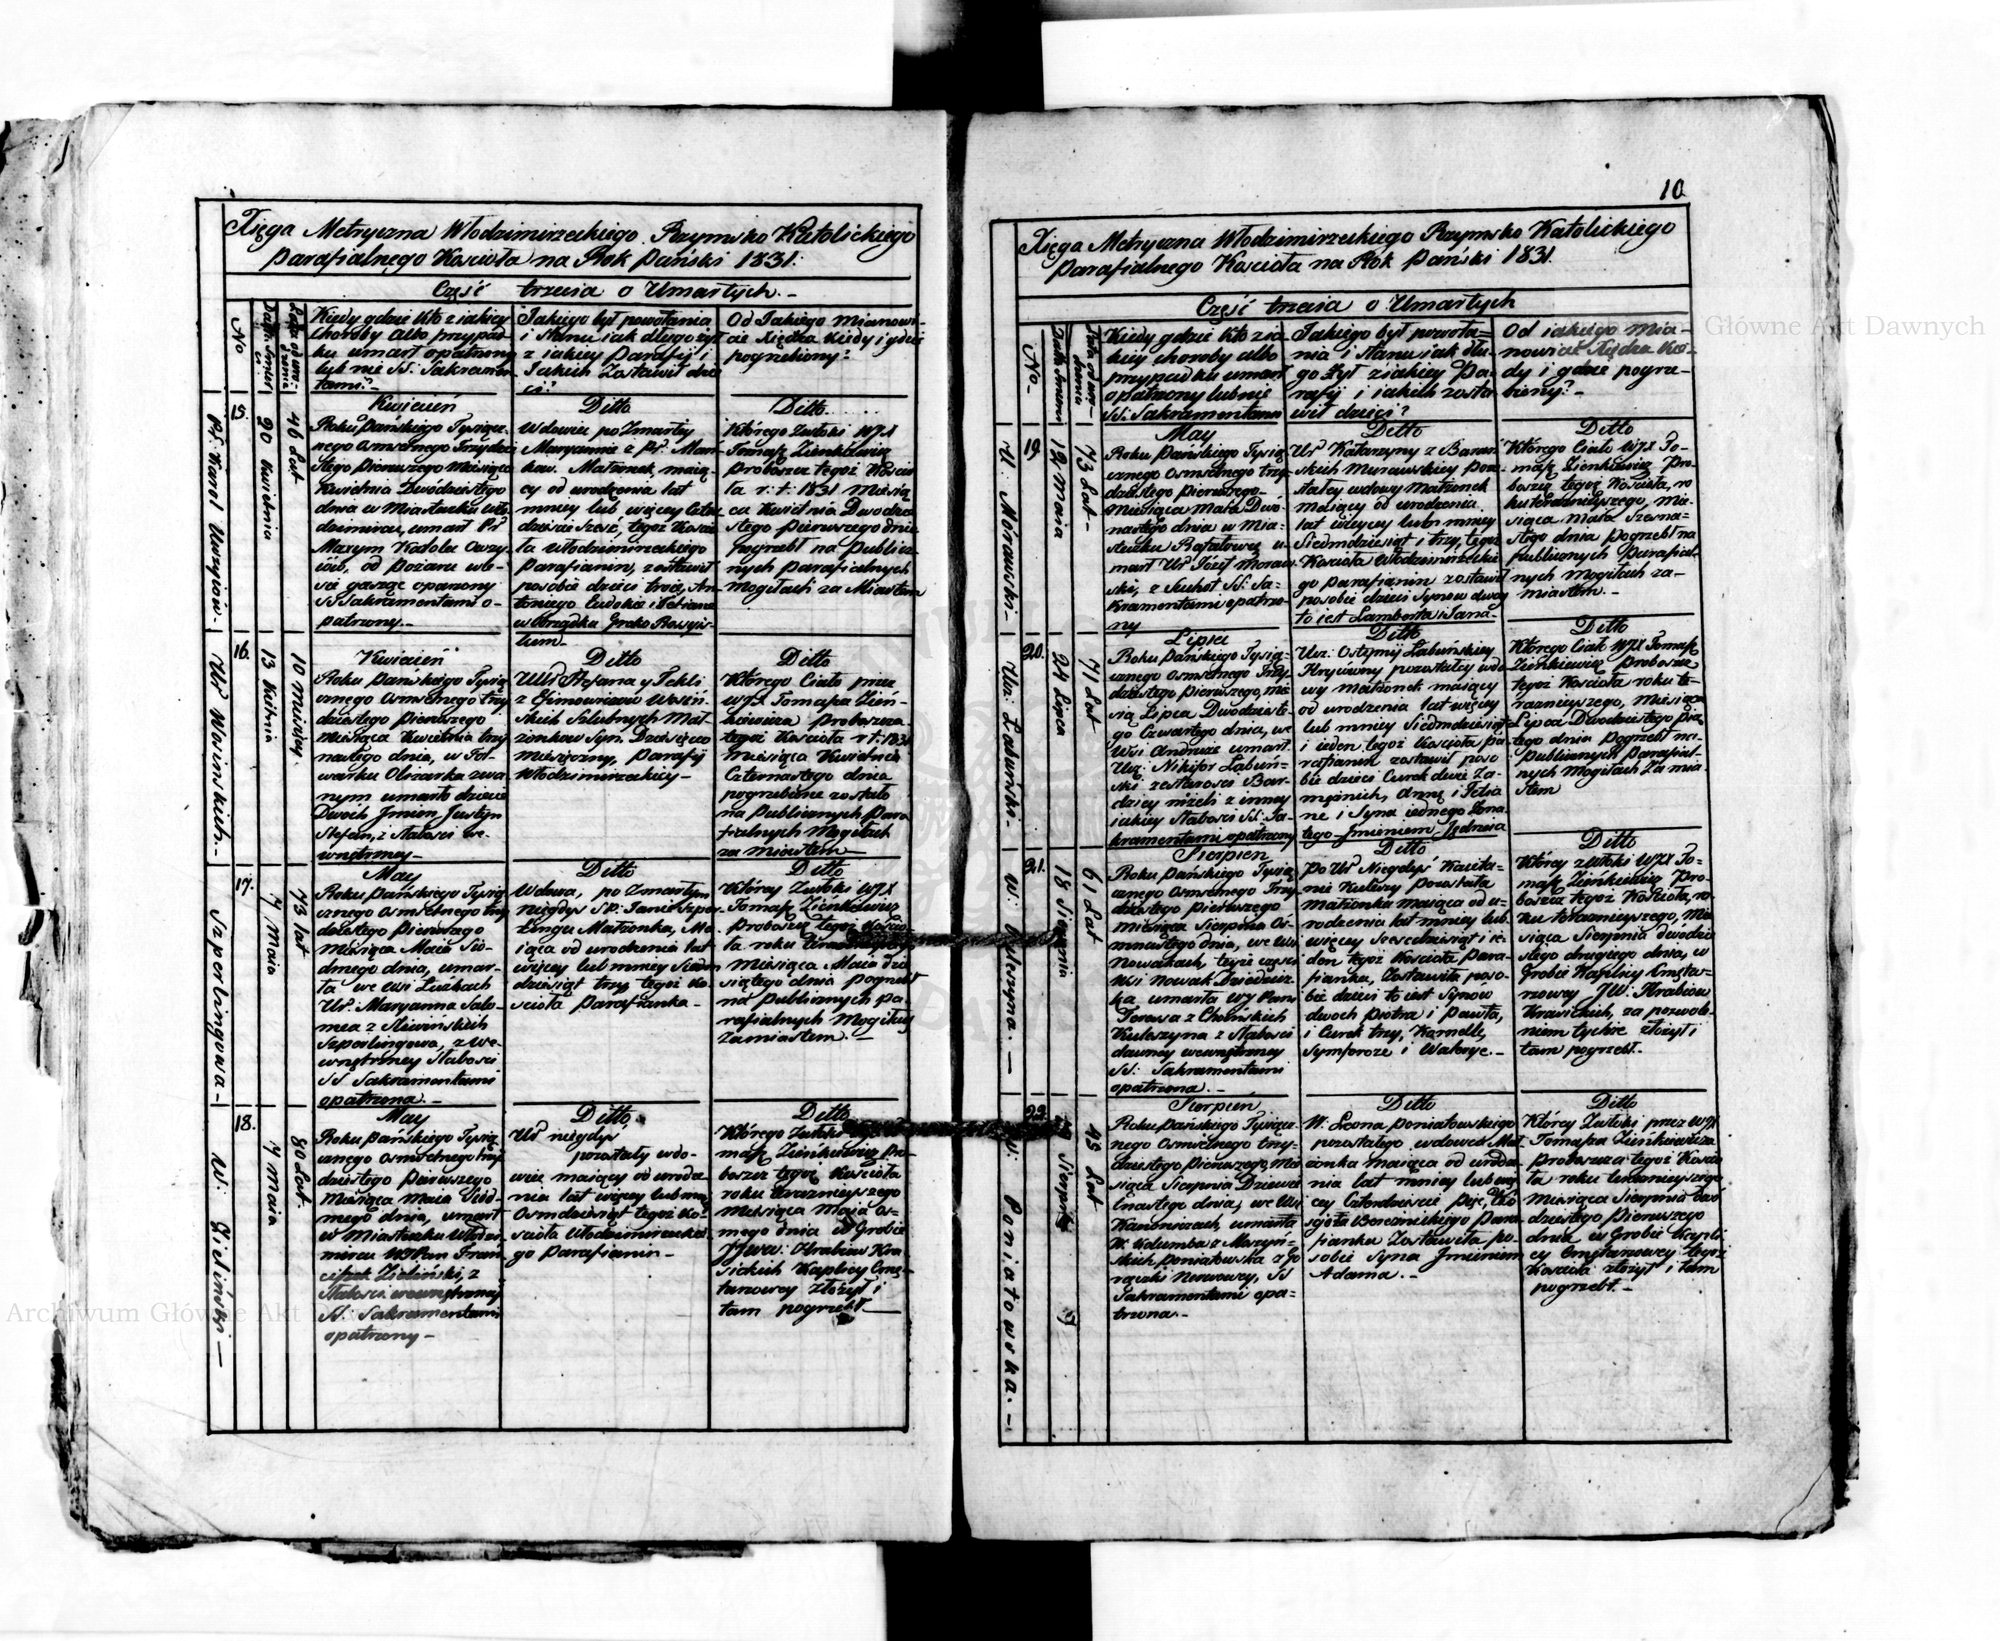 10
Xięga Metryczna Włodzimirzeckiego Rzymsko Katolickiego
Parafialnego Kościoła na Rok Pański 1831.
Część trzecia o Umarłych.-
No
Kiedy gdzie kto z iakiey
choroby albo przypad-
ku umarł opatrzony
lub nie SS: Sakramen-
tami?-
Jakiego był powołania
i Stanu iak długo żył
z iakiey Parafij i
Jakich Zostawił dzie
ci?
Od Jakiego mianowi-
cie Xiędza kiedy i gdzie
pogrzebiony?
15.
20 Kwietnia
46 Lat
Kwiecień
Roku Pańskiego Tysiącz-
nego Osmsetnego Trzydzie
stego Pierwszego Miesiąca
Kwietnia Dwódziestego
dnia w Miasteczku Wło-
dzimircu, umarł
od Pożaru
gasząc oparzony
SS Sakramentami o-
patrzony.-
Ditto
Wdowiec po Zmarłey
Maryannie
Małżonek maią
cy od urodzenia lat
mniey lub więcey Czter
dzieści sześć, tegoż Kościo
ła Włodzimirzeckiego
Parafianin, zostawił
posobie dzieci troie, An-
toniego
w Obrządku Greko Rossyis-
kiem.-
Ditto
Którego Zwłoki WJX
Tomasz Zienkiewicz
Proboszcz tegoż Kościo
ła r: t: 1831 Miesią
ca Kwietnia Dwódzie
stego pierwszego dnia
pogrzebł na publicz
nych parafialnych
Mogiłach za Miastem
16.
13 Kwietnia
10 Miesięcy
Ur Wosinskich.-
Kwiecień
Roku Pańskiego Tysią-
cznego Osmsetnego trzy
dziestego Pierwszego
Miesiąca Kwietnia trzy
nastego dnia, w Fol-
warku Olszanka zwa-
nym umarło dziecie
Dwóch Jmion Justyn
Stefan, z Słabości we-
wnętrzney-
Ditto
Urr Stefana y Tekli
z Efimowiczow Wosiń-
skich Slubnych Mał
żonkow Syn. Dziesięcio
Miesięczny, Parafij
Włodzimirzeckiey-
Ditto
Którego Ciało przez
WJX Tomasza Zień-
kiewicza Proboszcza
tegoż Kościoła r.t. 1831
Miesiąca Kwietnia
Czternastego dnia
pogrzebione zostało
na Publicznych Para
fialnych Mogiłach
za Miastem
17.
7 Maia
73 lat
Szperlingowa-
May
Roku Pańskiego Tysią
cznego Osmsetnego trzy
dziestego Pierwszego
Miesiąca Maia Sió-
dmego dnia, umar-
ła we wsi Luckach
Ur: Maryanna Salo-
mea z
Szperlingowa, z we-
wnętrzney Słabości
SS Sakramentami
opatrzona.-
Ditto
Wdowa, po Zmarłym
niegdyś SP: Janie Szper-
lingu Małżonka, Ma-
iąca od urodzenia lat
więcey lub mniey Siedm
dziesiąt trzy tegoż Ko-
ścioła Parafianka-
Ditto
Którey Zwłoki WJX
Tomasz Zieńkiewicz
Proboszcz tegoż Kościo
ła roku teraznieyszego
Miesiąca Maia dzie
siątego dnia pogrzebł
na Publicznych pa-
rafialnych Mogiłach
zamiastem.-
18.
7 Maia
80 Lat
W: Zieliński-
May
Roku Pańskiego Tysią
cznego Osmsetnego trzy
dziestego Pierwszego
Miesiąca Maia Siód-
mego dnia, umarł
w Miasteczku Włodzi-
mircu WJPan Fran
ciszek Zieliński, z
Słabości wewnętrzney
SS. Sakramentami
opatrzony-
Ditto.
Ur niegdyś
pozostały wdo-
wiec maiący od urodze-
nia lat więcey lub mniey
Osmdziesiąt tegoż Ko-
ścioła Włodzimirzeckie-
go Parafianin-
Ditto
Którego Zwłoki
masz Zieńkiewicz Pro
boszcz tegoż Kościoła
roku teraznieyszego
Miesiąca Maja os-
mego dnia w Grobie
Hrabiow Kra
sickich Kaplicy Cmę-
tarzowey złożył i
tam pogrzebł
Xięga Metryczna Włodzimirzeckiego Rzymsko Katolickiego
Parafialnego Kościoła na Rok Pański 1831.
Część trzecia o Umarłych
No.
Kiedy gdzie kto z ia-
kiey choroby albo
przypadku umarł
opatrzony lub nie
SS: Sakramentami
Jakiego był powoła-
nia i Stanu iak dłu-
go żył z iakiey Pa-
rafij i iakich zosta
wił dzieci?
Od iakiego Mia-
nowicie Xiędza Kie-
dy i gdzie pogrze-
biony?-
19.
12 Maia
73 Lat-
U: Morawski-
May
Roku Pańskiego Tysią
cznego Osmsetnego trzy-
dziestego pierwszego-
Miesiąca Maia Dwó-
nastego dnia w Mia-
steczku Rafałowce u-
marł Ur Jozef Moraw-
ski, z Suchot SS. Sa-
kramentami opatrzo-
ny
Ditto
Ur Katarzyny z Baran
skich Murawskiey Pozo-
stałey wdowy Małżonek
maiący od urodzenia
lat więcey lub mniey
Siedmdziesiąt i trzy, tegoż
Kościoła Włodzimirzeckie
go Parafianin zostawił
posobie dzieci Synow dwoy
to iest Lamberta i Jana-
Ditto
Którego Ciało WJX To-
masz Zienkiewicz Pro-
boszcz tegoż Kościoła, ro
ku teraznieyszego, Mie-
siąca Maia Szesna-
stego dnia pogrzebł na
publicznych parafial-
nych Mogiłach za-
miastem.-
20.
24 Lipca
71 Lat
Lipiec
Roku Pańskiego Tysią-
cznego Osmsetnego Trzy
dziestego Pierwszego, Mie
siąca Lipca Dwódzieste-
go Czwartego dnia, we
Wsi Andruze umarł
Urz: Nikifor Łabuń-
ski z starości Bar-
dziey niżeli z inney
iakiey Słabości SS: Sa-
kramentami opatrzony
Ditto
Łabuńskiey
pozostałey wdo-
wy Małżonek maiący
od urodzenia lat więcy
lub mniey Siedmdziesiąt
i ieden tegoż Kościoła Pa
rafianin zostawił poso
bie dzieci Curek dwie Za-
mężnich, Annę i Tetia
nę i Syna iednego
Jmieniem
Ditto
Którego Ciało WJX Tomasz
Zieńkiewicz Proboszcz
tegoż Kościoła roku te-
raznieyszego, Miesiąca
Lipca Dwódziestego Pią
tego dnia pogrzebł na
Publicznych Parafial-
nych Mogiłach Za mia-
stem
21.
18 Sierpnia
61 Lat
W: Kuleszyna.-
Sierpień
Roku Pańskiego Tysią
cznego Osmsetnego Trzy-
dziestego Pierwszego
Miesiąca Sierpnia Os-
mnastego dnia, we Wsi
Nowakach, teyże części
Wsi Nowak Dziedzicz
ka umarła WJPani
Teressa z
Kuleszyna z Słabości
dawney wewnętrzney
SS: Sakramentami
opatrzona.-
Ditto
Po Ur Niegdyś Kaieta-
nie Kuleszy Pozostała
Małżonka maiąca od u-
rodzenia lat mniey lub
więcey Sześćdziesiąt i ie-
den tegoż Kościoła Para-
fianka, Zostawiła poso-
bie dzieci to iest Synów
dwoch Piotra i Pawła,
i Curek trzy, Kornellę,
Symforozę i Waleryę.-
Ditto
Którey zwłoki WJX To-
masz Zieńkiewicz Pro-
boszcz tegoż Kościoła, ro-
ku teraznieyszego, Mie
siąca Sierpnia dwódzie
stego drugiego dnia, w
Grobie Kaplicy Cmętar-
zowey JW: Hrabiow
Krasickich, za pozwole-
niem tychże złożył i
tam pogrzebł.-
22.
Sierpnia
45 Lat
W. Poniatowska.-
Sierpień
Roku Pańskiego Tysiącz-
nego Osmsetnego trzy-
dziestego Pierwszego, Mie
siąca Sierpnia Dziewię
tnastego dnia, we Wsi
umarła
W. Kolumba z
skich Poniatowska z Go
rączki Nerwowey, SS
Sakramentami opa-
trzona.-
Ditto
W. Leona Poniatowskiego
pozostałego wdowca Mał
żonka maiąca od urodze-
nia lat mniey lub wię
cey Czterdzieści Pięć, Ko
ścioła Bereznickiego Para
fianka Zostawiła po-
sobie Syna Jmieniem
Adama.-
Ditto
Którey Zwłoki przez WJX
Tomasza Zieńkiewicza
Proboszcza tegoż Kościo
ła roku teraznieyszego
Miesiąca Sierpnia Dwó
dziestego Pierwszego
dnia w Grobie Kapli
cy Cmętarzowey tegoż
Kościoła złożył i tam
pogrzebł.-
Archiwum Główne Akt
Główne Akt Dawnych